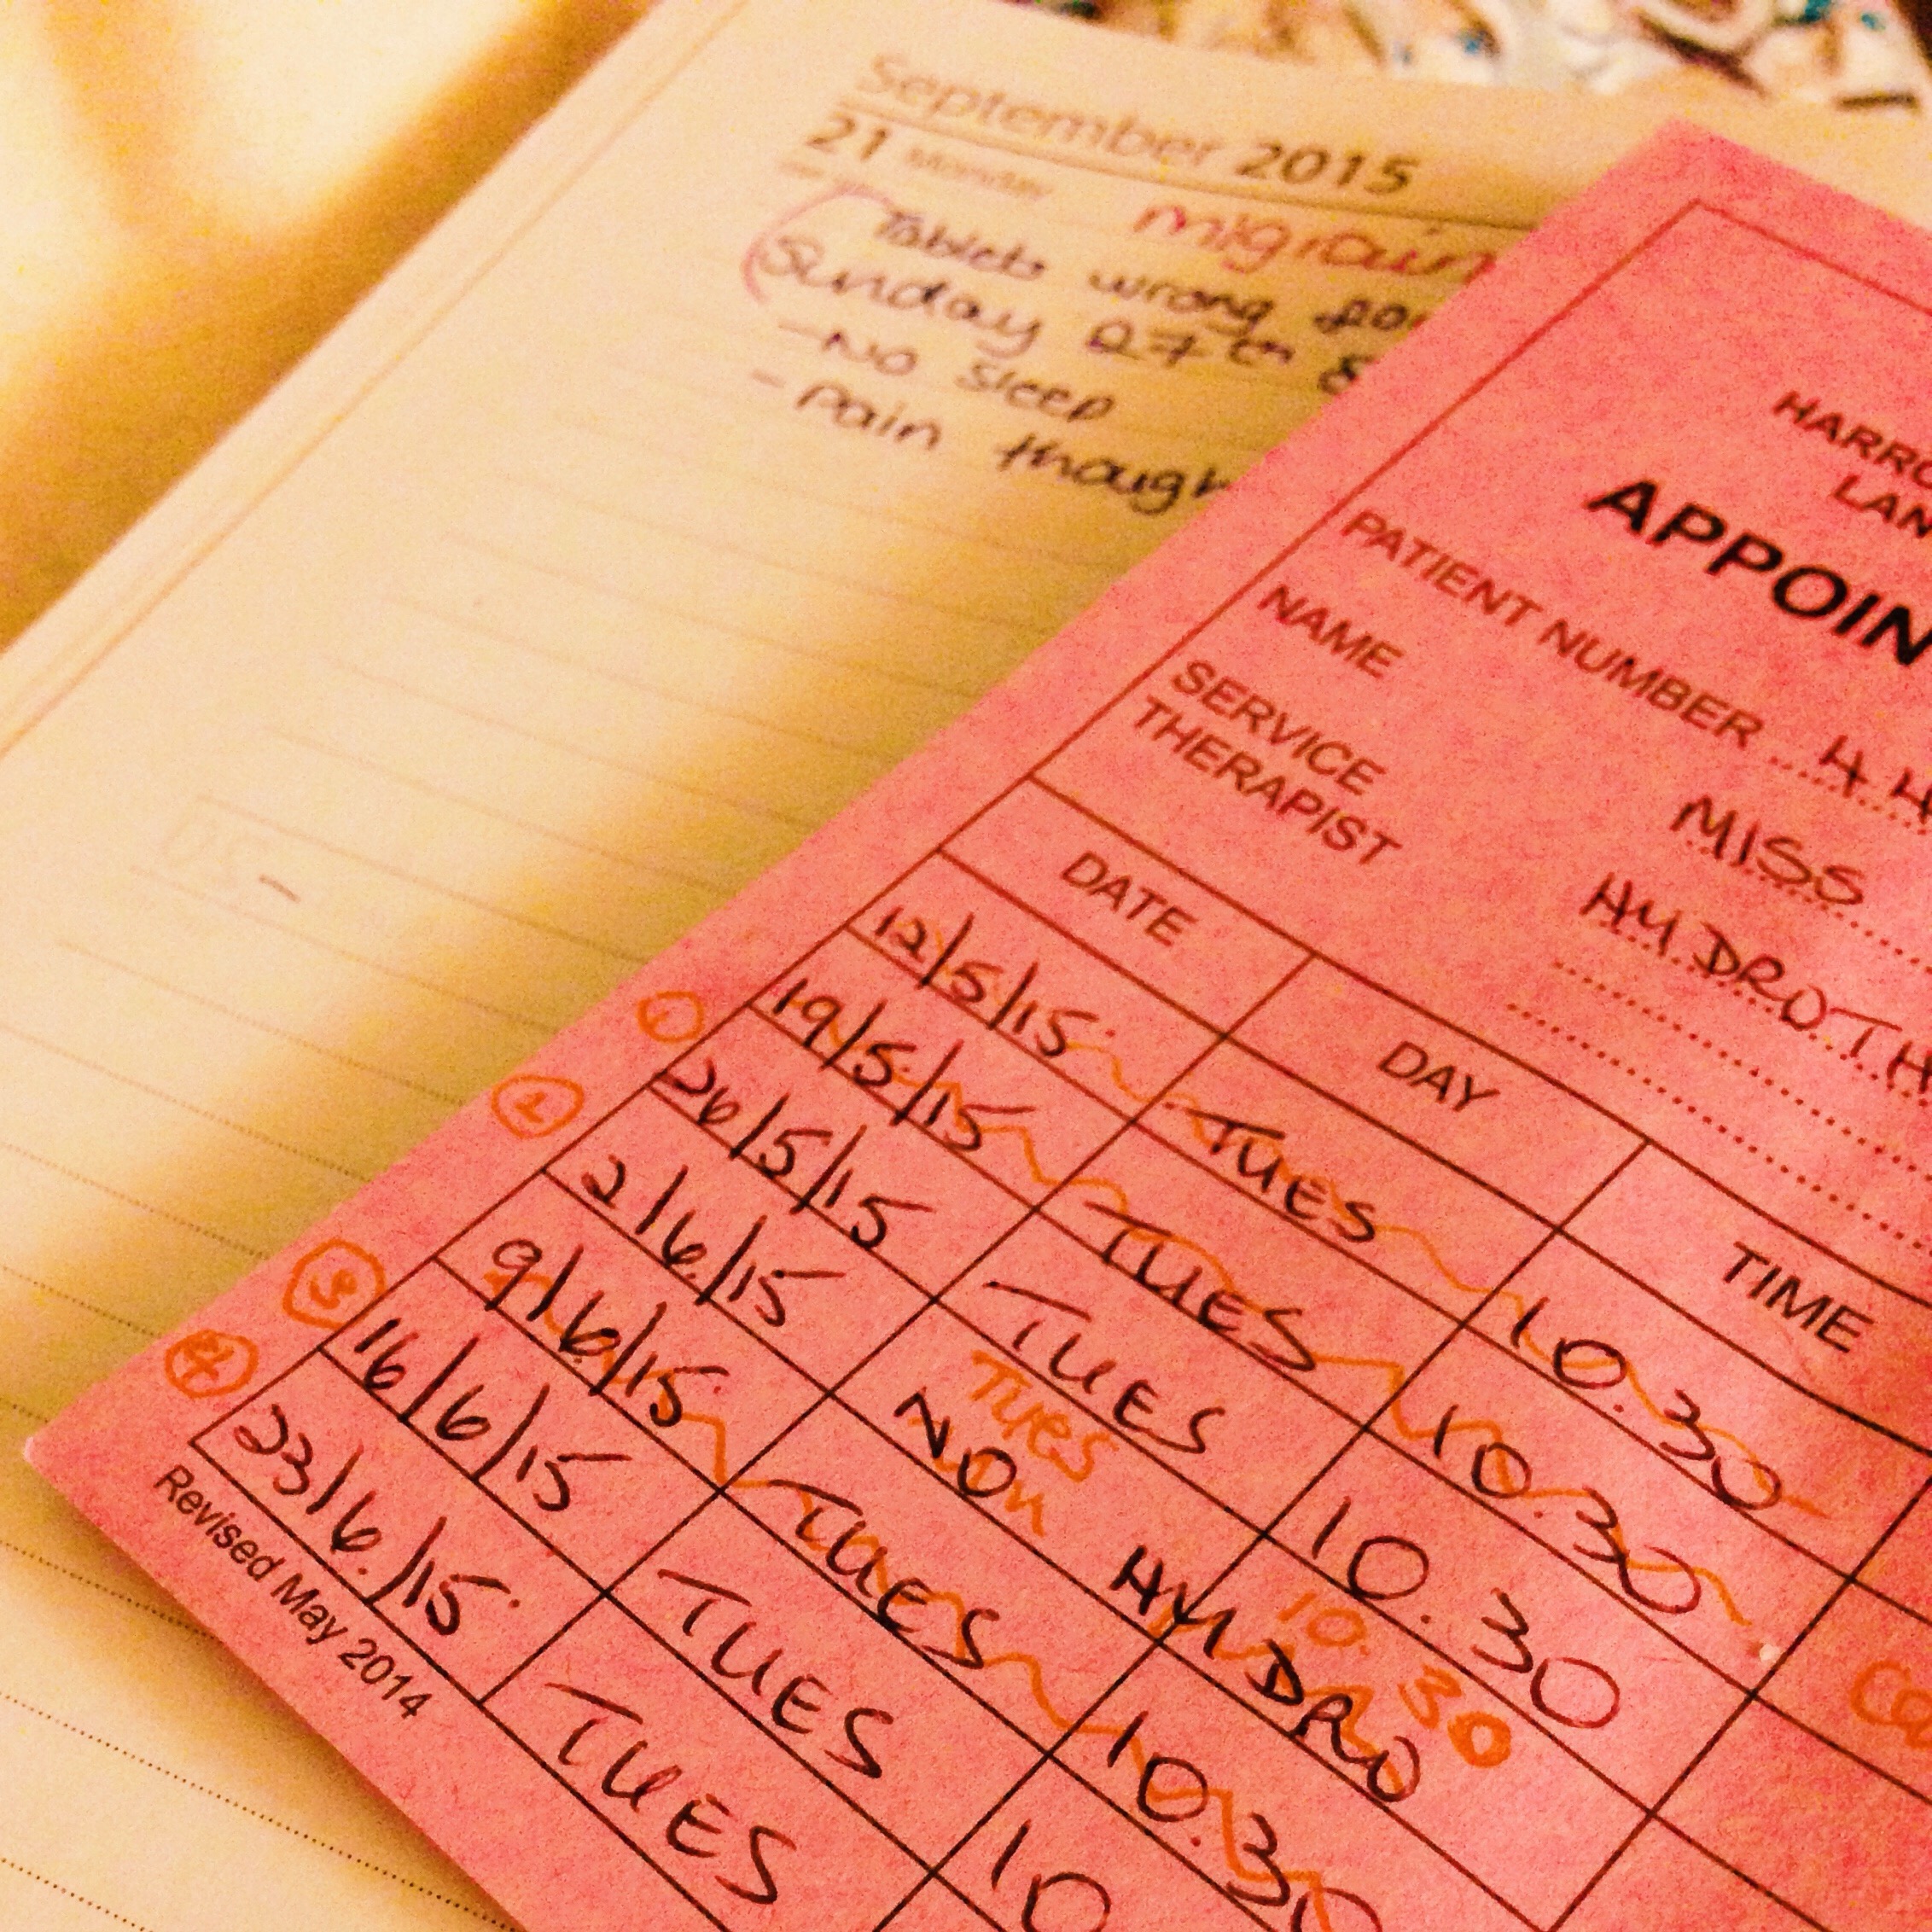 September 2015
21 Monday
migrain
Tablets wrong
Sunday 27th
- No sleep
- Pain though
HARRO
LAN
APPOIN
PATIENT NUMBER 4 H
NAME MISS
SERVICE HYDROTH
THERAPIST
DATE DAY TIME
12/5/15 TUES 10.30
① 19/5/15 TUES 10.30
② 26/5/15 TUES 10.30
Tues 10.30
2/6/15 NO HYDRO
9/6/15 TUES 10.30
③ 16/6/15 TUES 10
④ 23/6/15 TUES
Revised May 2014